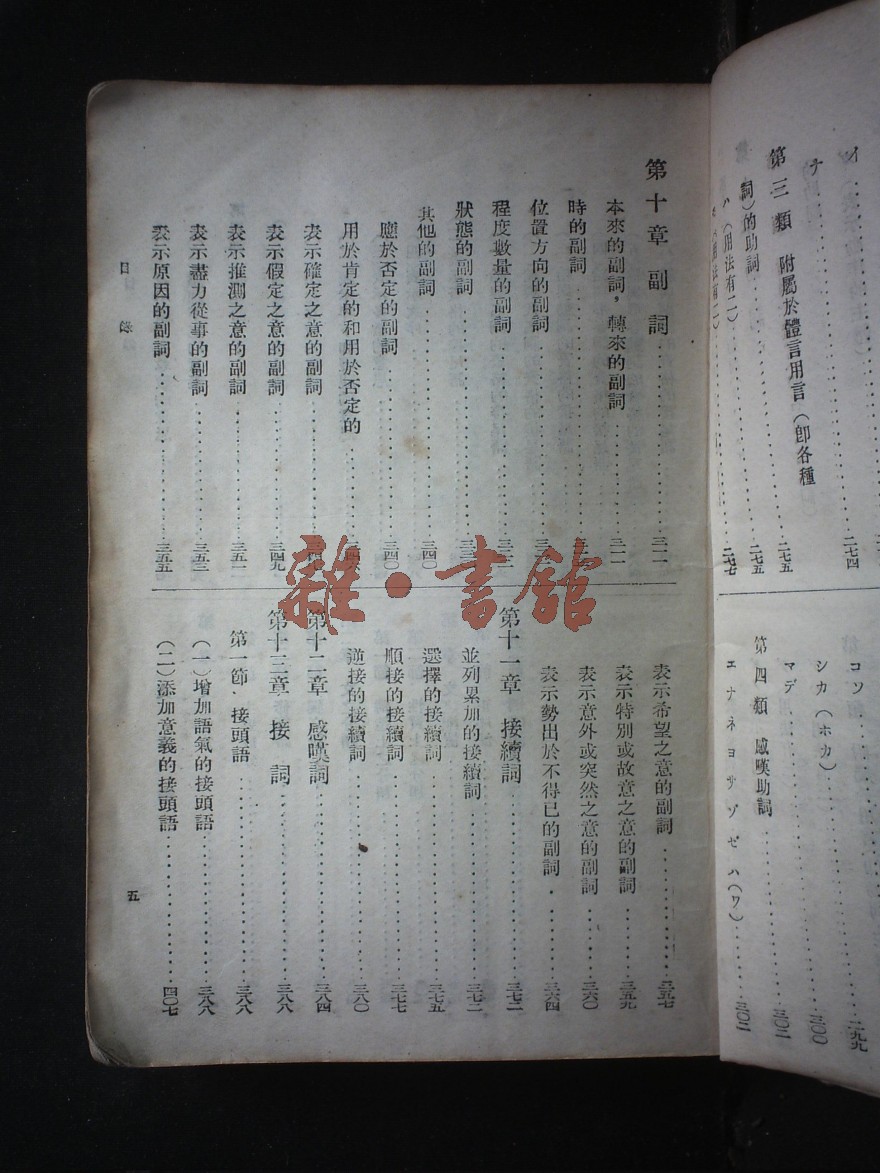 イ
ナ……二七四
第三類 附屬於體言用言（卽各種
詞）的助詞……二七五
ハ（用法有二）……二七五
二七七
コソ……二九九
シカ（ホカ）……三〇〇
マデ……三〇二
第四類 感嘆助詞
エナネヨサゾゼハ（ワ）……三〇二
第十章 副詞……三一一
本來的副詞，轉來的副詞……三一一
時的副詞
位置方向的副詞
程度數量的副詞
狀態的副詞
其他的副詞……三四〇
應於否定的副詞……三四〇
用於肯定的和用於否定的……三四六
表示確定之意的副詞
表示假定之意的副詞……三四九
表示推測之意的副詞……三五一
表示盡力從事的副詞……三五三
表示原因的副詞……三五五
表示希望之意的副詞……三五七
表示特別或故意之意的副詞……三五九
表示意外或突然之意的副詞……三六〇
表示勢出於不得已的副詞……三六四
第十一章 接續詞……三七二
並列累加的接續詞……三七二
選擇的接續詞……三七五
順接的接續詞……三七七
逆接的接續詞……三八〇
第十二章 感嘆詞……三八四
第十三章 接詞……三八八
第一節、接頭語……三八八
（一）增加語氣的接頭語……三八八
（二）添加意義的接頭語……四〇七
目錄
五
雜·書館